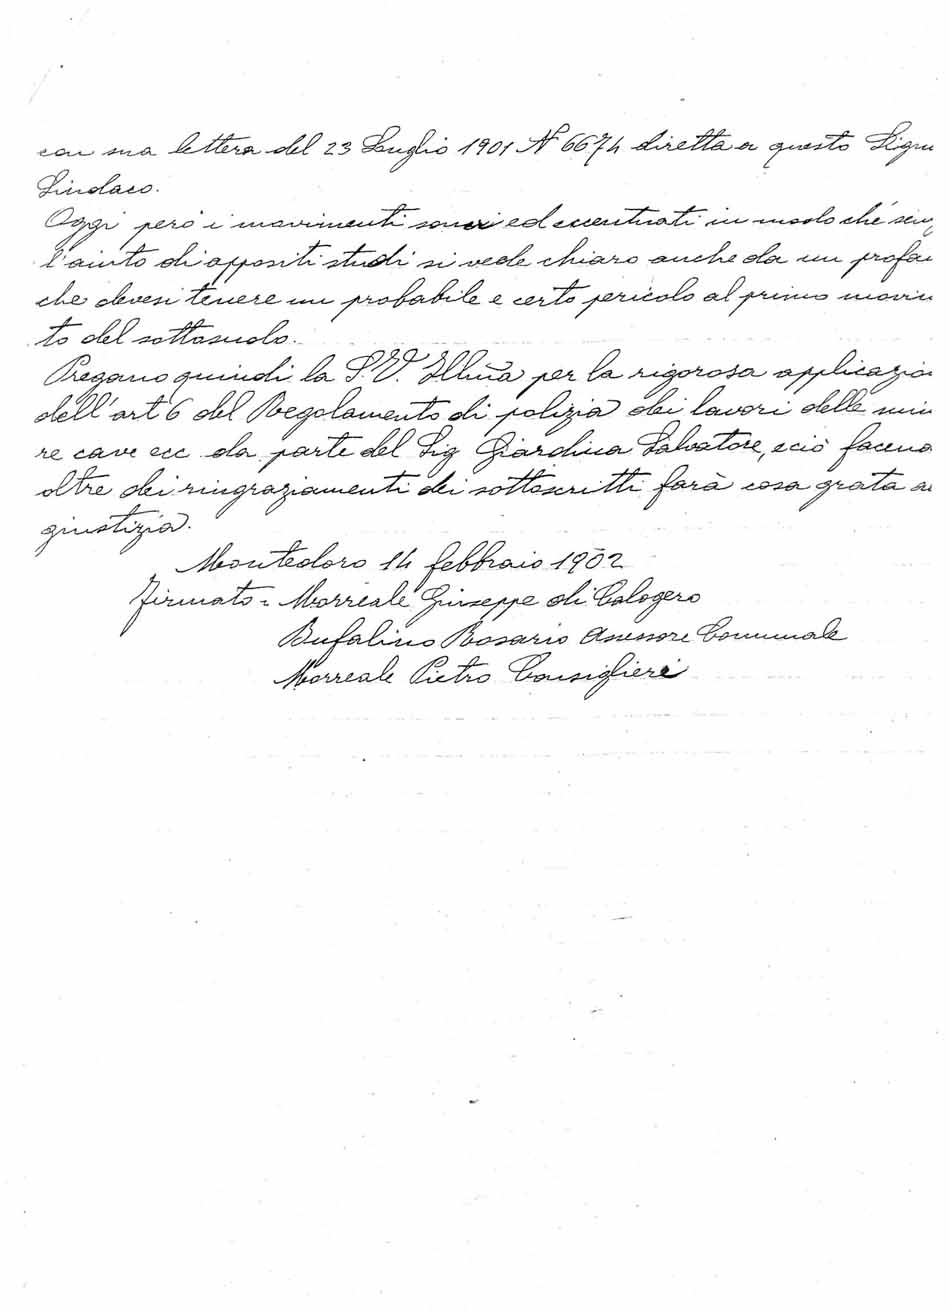 con sua lettera del 23 Luglio 1901 N 6674 diretta a questo Signo
Sindaco.
Oggi però i movimenti sonosi ed accentuati in modo chè senz
l'aiuto di appositi studi si vede chiaro anche da un profan
che devesi tenere un probabile e certo pericolo al primo movim
to del sottosuolo.
Pregano quindi la S.V. Ill̃ma per la rigorosa applicazio
dell'art 6 del Regolamento di polizia dei lavori delle mini
re cave ecc da parte del Sig Giardina Salvatore, e ciò facend
oltre dei ringraziamenti dei sottoscritti farà cosa grata a
giustizia.
Montedoro 14 febbraio 1902
Firmato = Morreale Giuseppe di Calogero
Bufalino Rosario Assessore Comunale
Morreale Pietro Consigliere